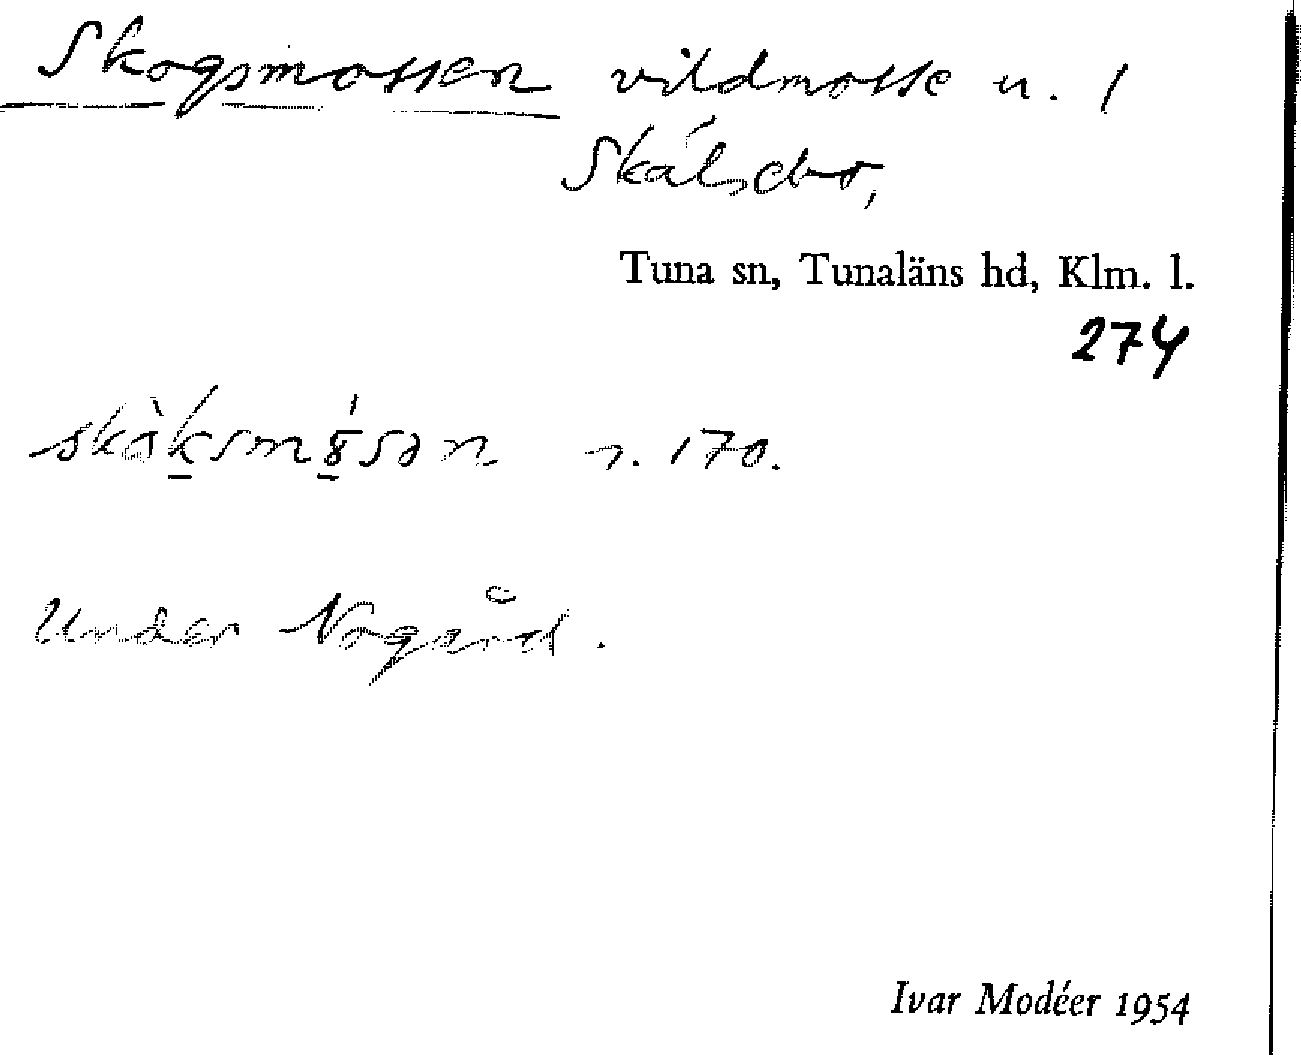 Skogsmossen vildmosse u. 1
Skälsebo,
Tuna sn, Tunaläns hd, Klm. l.
274
n. 170.
Under Nogård.
Ivar Modéer 1954